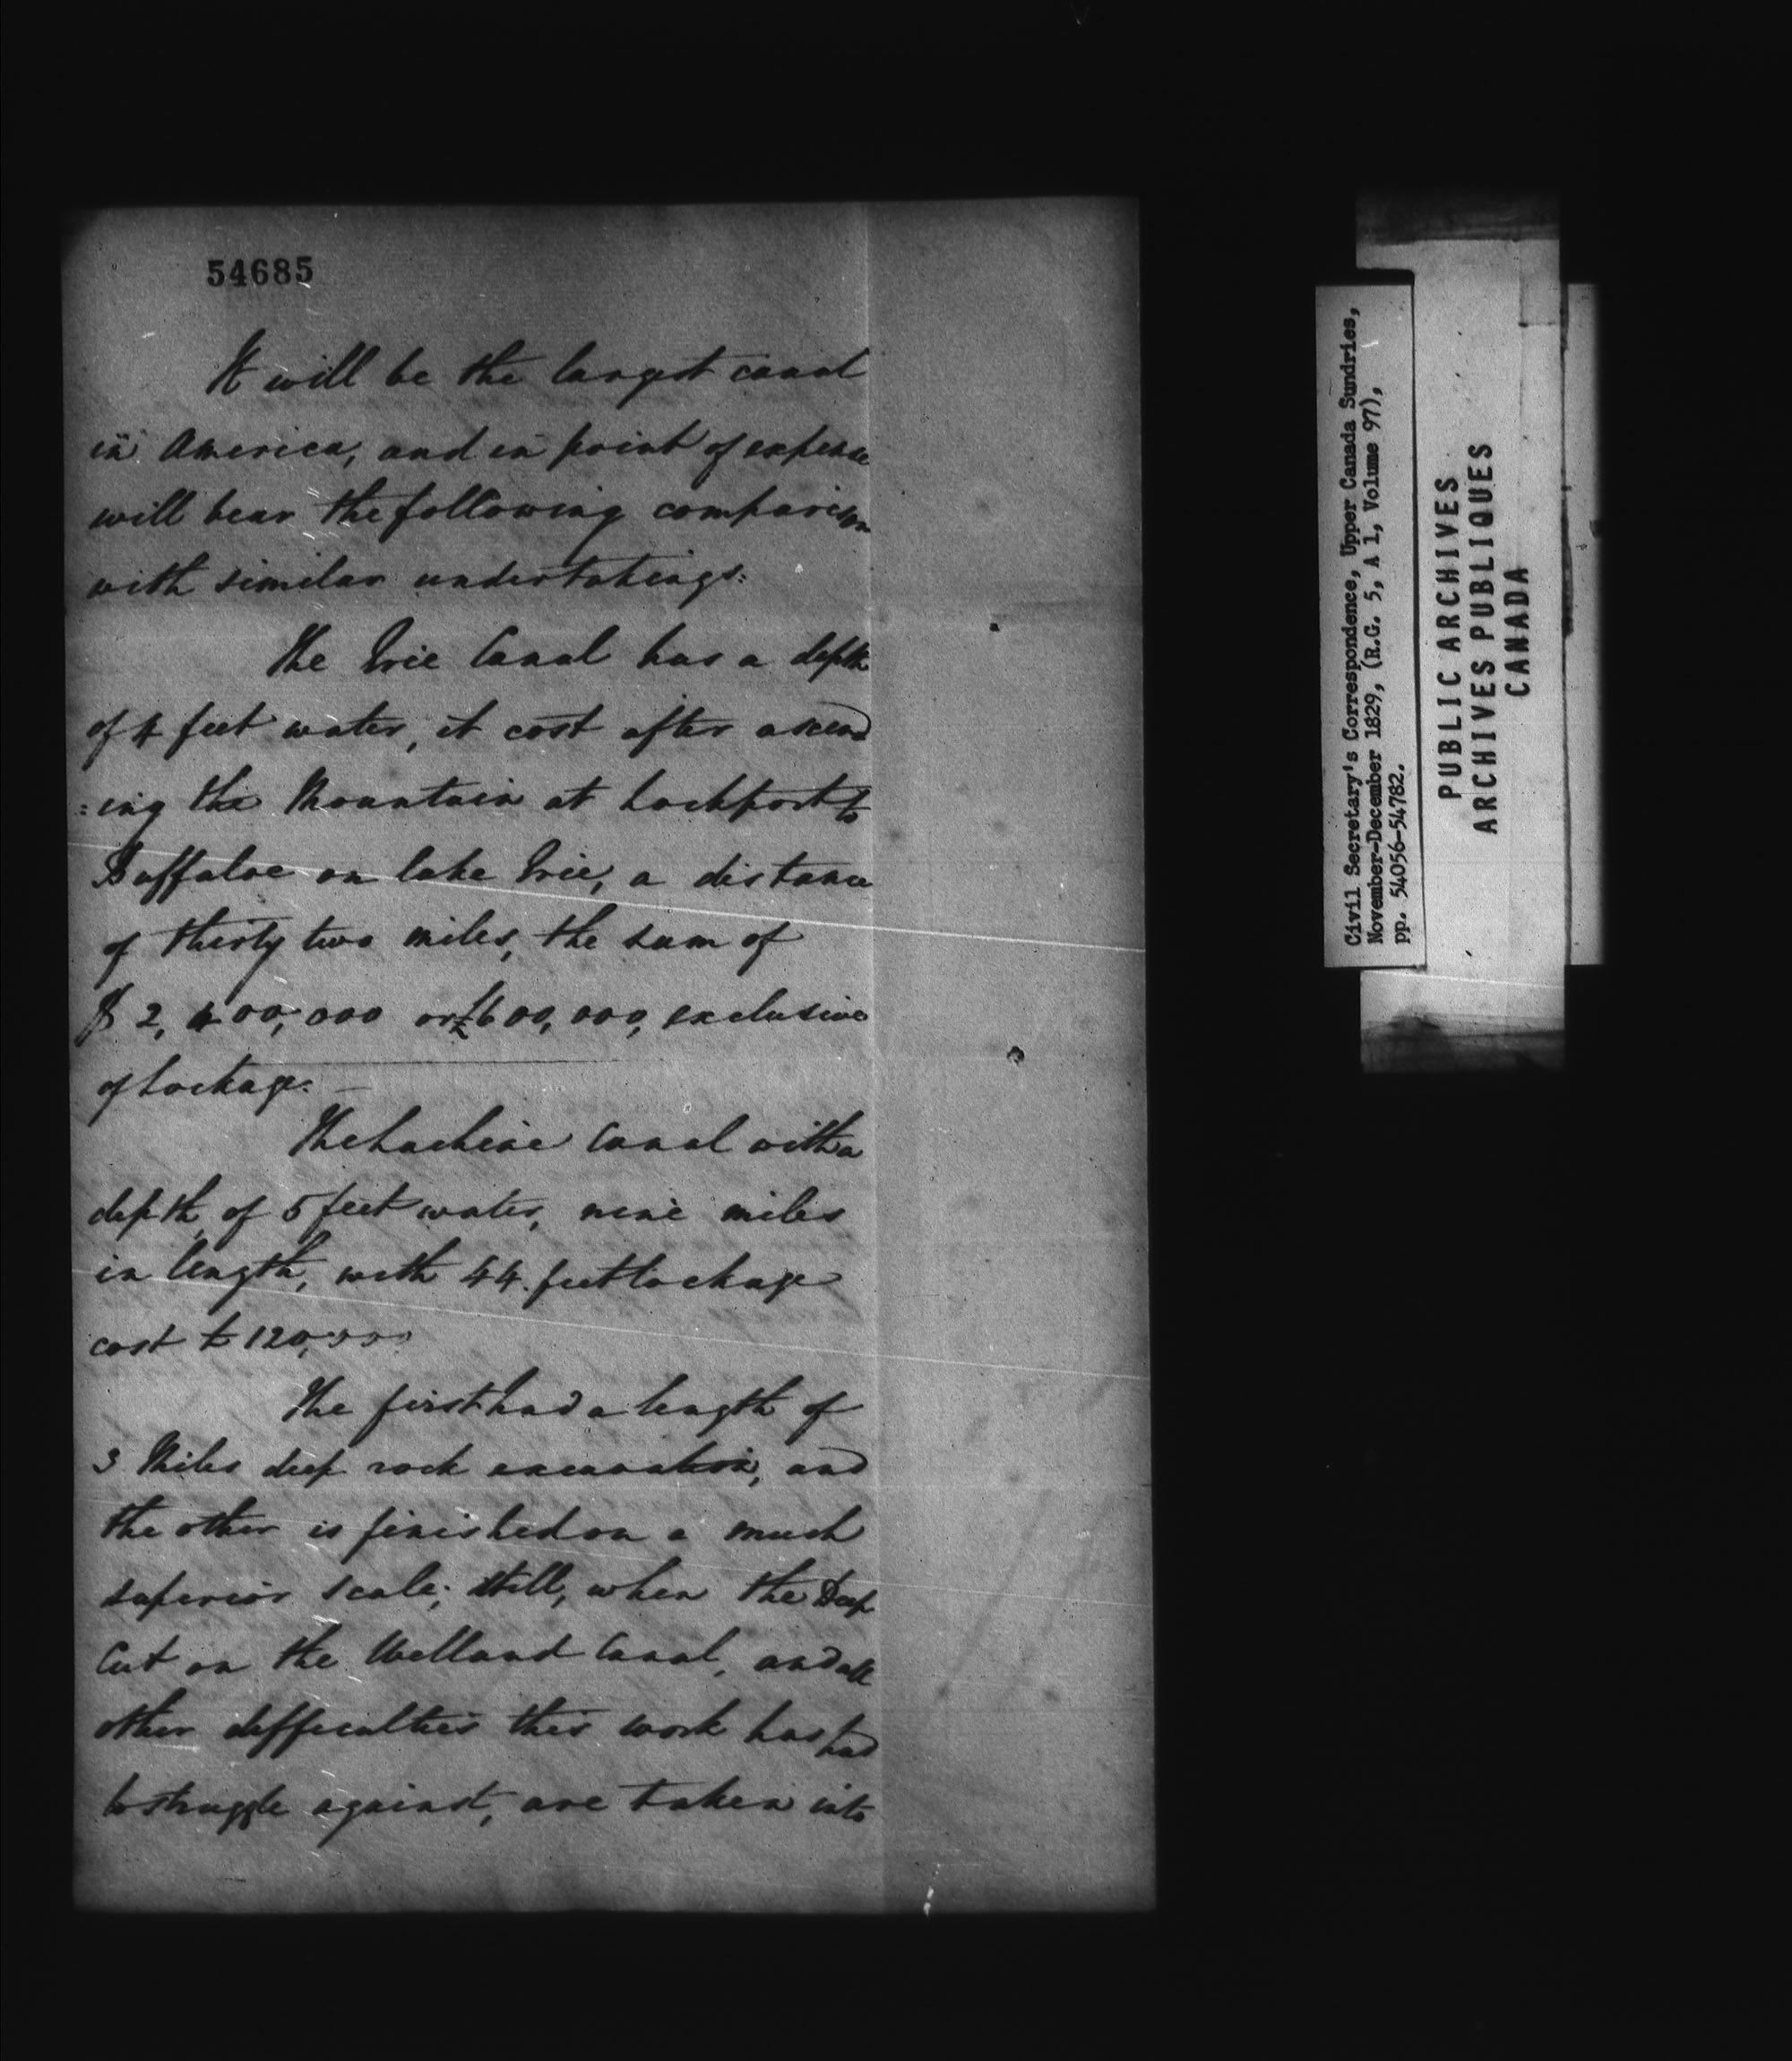 54685
It will be the largest canal
in America, and in point of expense
will bear the following comparison
with similar undertakings:
The Erie Canal has a depth
of 4 feet water, it cost after ascend
=ing the Mountain at Lockport to
Buffaloe on lake Erie, a distance
of thirty two miles, the sum of
$ 2,400,000 or £600,000, exclusive
of Lockage. —
The Lachine Canal with a
depth of 5 feet water, nine miles
in length, with 44. feet lockage
cost £ 120,000
The first had a length of
3 Miles deep rock excavation, and
the other is finished on a much
superior scale; still, when the Deep
Cut on the Welland Canal, and all
other difficulties this work has had
to struggle against, are taken into
Civil Secretary's Correspondence, Upper Canada Sundries,
November-December 1829, (R.G. 5, A 1, Volume 97),
pp. 54056-54782.
PUBLIC ARCHIVES
ARCHIVES PUBLIQUES
CANADA